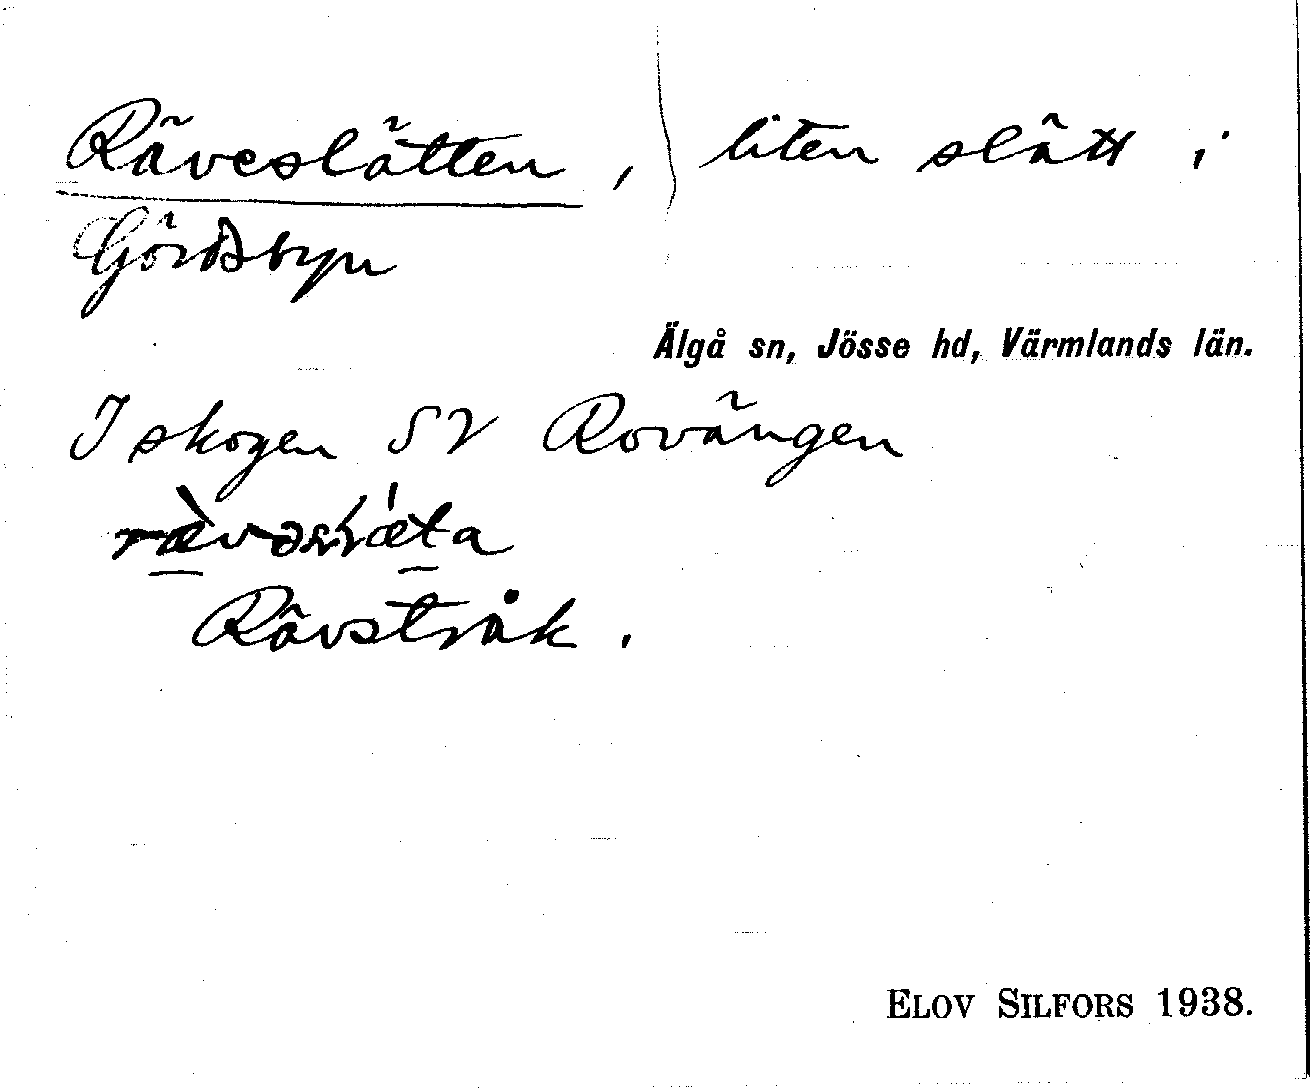 Räveslätten, liten slätt i
Gördsbyn
Älgå sn, Jösse hd, Värmlands län.
I skogen SV Rovängen
Rävstråk.
ELOV SILFORS 1938.